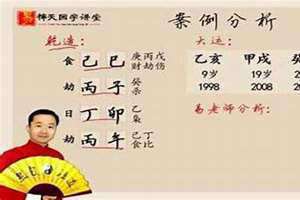 天国学讲堂
案例分析
乾造:
大运:
食 己巳 庚丙戊
财劫伤
劫 丙子 癸
杀
日 丁卯 乙
枭
劫 丙午 己丁
食比
乙亥 甲戌
9岁 19岁 2
1998 2008 20
易老师分析: